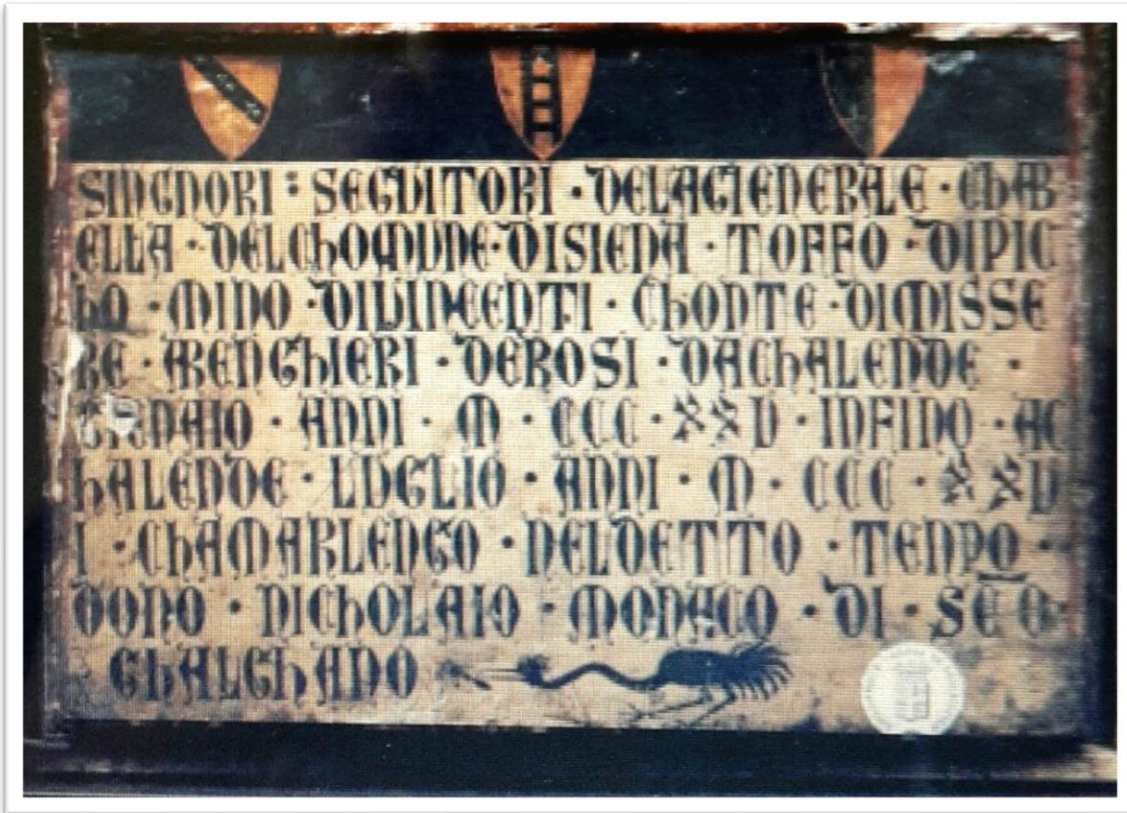 SINGNORI : SEGUITORI · DELAGIENERALE · CHAB
ELLA · DELCHOMUNE · DISIENA · TOFFO · DIPIC
HO · MINO · DIVINCENTI · CHONTE · DIMISSE
RE · ARENGHIERI · DEROSI · DACHALENDE ·
GIENAIO · ANNI · M · CCC · XXV · INFINO · AC
HALENDE · LUGLIO · ANNI · M · CCC · XXV
I · CHAMARLENGO · NELDETTO · TENPO ·
DONO · NICHOLAIO · MONACO · DI · SCO
GHALGHANO